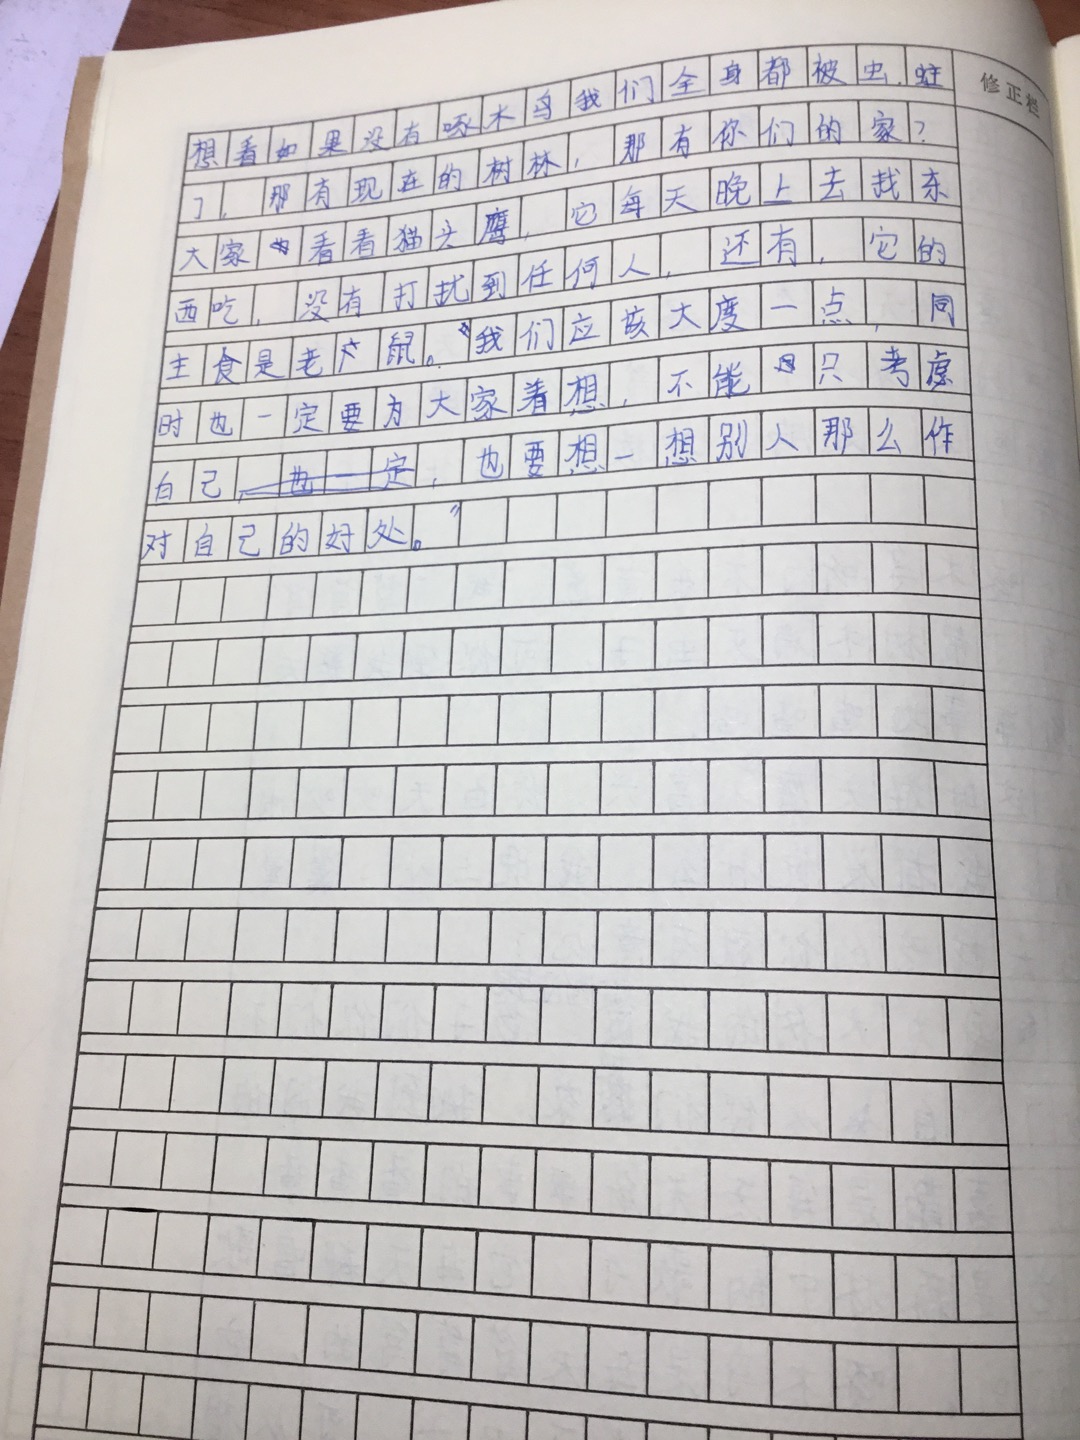 修正栏
想看如果没有啄木鸟我们全身都被虫蛀
了，那有现在的树林，那有你们的家？
大家看看猫头鹰，它每天晚上去找东
西吃，没有打扰到任何人，还有，它的
主食是老鼠。“我们应该大度一点，同
时也一定要为大家着想，不能只考虑
自己，也一定，也要想一想别人那么作
对自己的好处。”